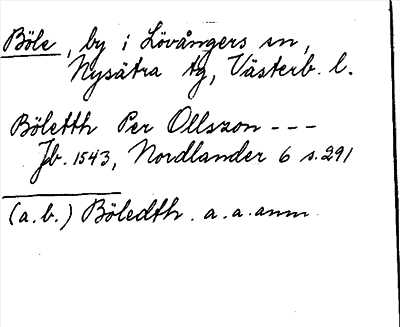 Böle, by i Lövångers sn,
Nysätra tg, Västerb. l.
Böletth Per Ollszon ---
Jb. 1543, Nordlander 6 s. 291
(a.b.) Böledth. a. a. anm.